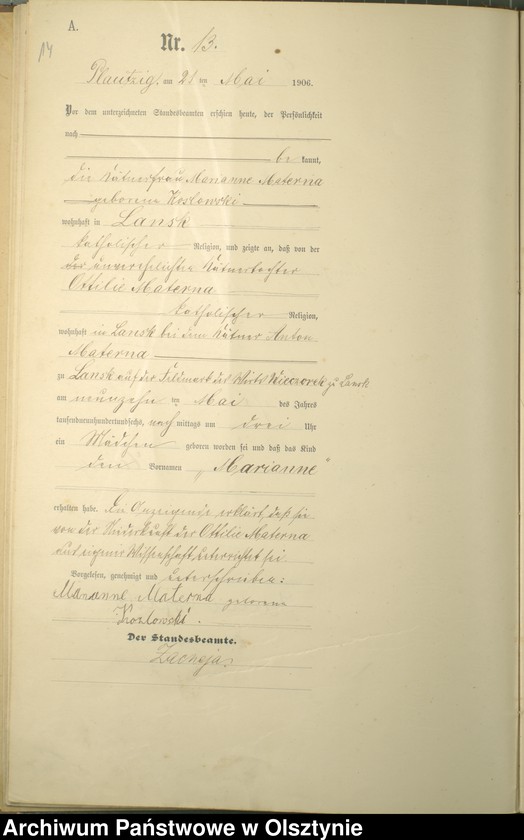 A.
14
Nr. 13.
Plautzig, am 21 ten Mai 1906.
Vor dem unterzeichneten Standesbeamten erschien heute, der Persönlichkeit
nach
be kannt,
die Kätnerfrau Marianne Materna
geborene Koslowski
wohnhaft in Lansk
katholischer Religion, und zeigte an, daß von der
der unverehelichten Kätnertochter
Ottilie Materna
katholischer Religion,
wohnhaft in Lansk bei dem Kätner Anton
Materna
zu Lansk auf der Feldmark des Wirts Wieczorek zu Lansk
am neunzehn ten Mai des Jahres
tausendneunhundertundsechs, nach mittags um drei Uhr
ein Mädchen geboren worden sei und daß das Kind
den Vornamen „Marianne“
erhalten habe. Die Anzeigende erklärt, daß sie
von der Niederkunft der Ottilie Materna
aus eigener Wissenschaft unterrichtet sei.
Vorgelesen, genehmigt und unterschrieben:
Marianne Materna geborene
Kozlowski.
Der Standesbeamte.
Archiwum Państwowe w Olsztynie